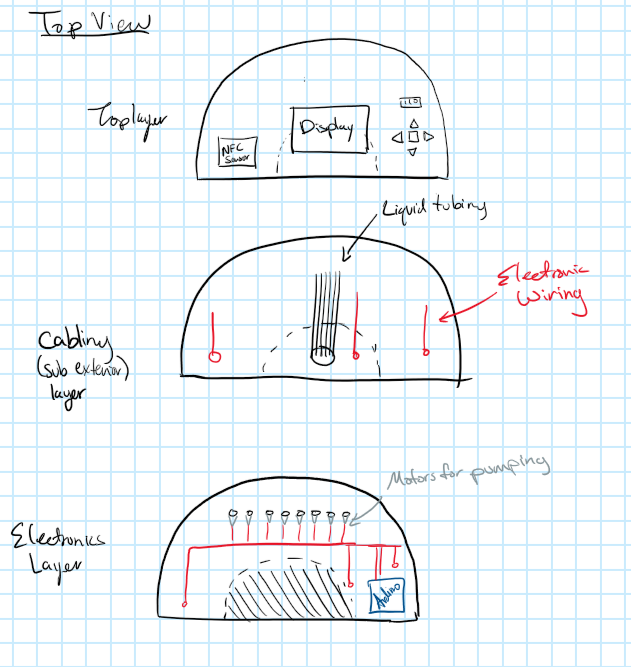 Top View
Top layer
Display
NFC
Sensor
Liquid tubing
Electronic
Wiring
Cabling
(sub exterior)
layer
Motors for pumping
Electronics
Layer
Arduino